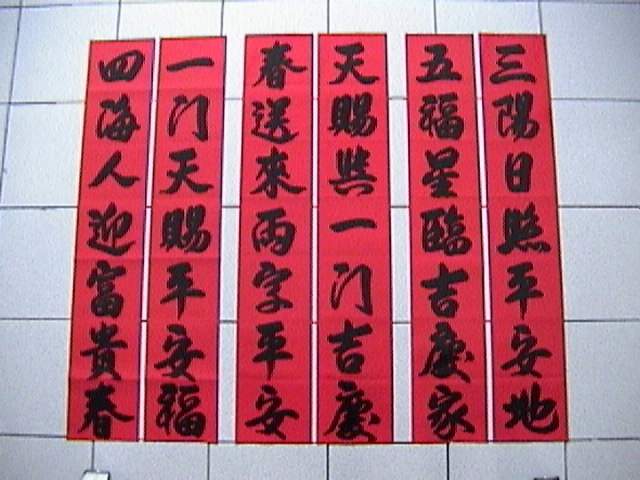 三陽日照平安地
五福星臨吉慶家
天賜與一门吉慶
春送來兩字平安
一门天賜平安福
四海人迎富貴春